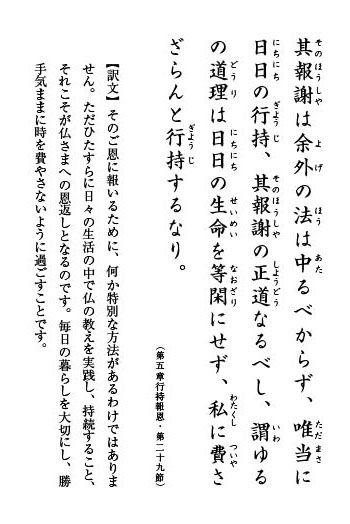 其報謝は余外の法は中るべからず、唯当に
日日の行持、其報謝の正道なるべし、謂ゆる
の道理は日日の生命を等閑にせず、私に費さ
ざらんと行持するなり。
(第五章行持報恩・第二十九節)
【訳文】そのご恩に報いるために、何か特別な方法があるわけではありま
せん。ただひたすらに日々の生活の中で仏の教えを実践し、持続すること、
それこそが仏さまへの恩返しとなるのです。毎日の暮らしを大切にし、勝
手気ままに時を費やさないように過ごすことです。